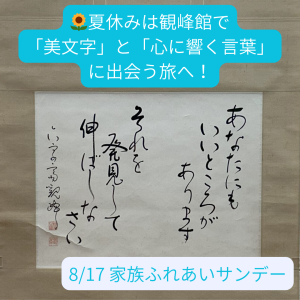 🌻夏休みは観峰館で
「美文字」と「心に響く言葉」
に出会う旅へ！
あなたにも
いいところが
あります
それを
発見して
伸ばしなさい
8/17 家族ふれあいサンデー